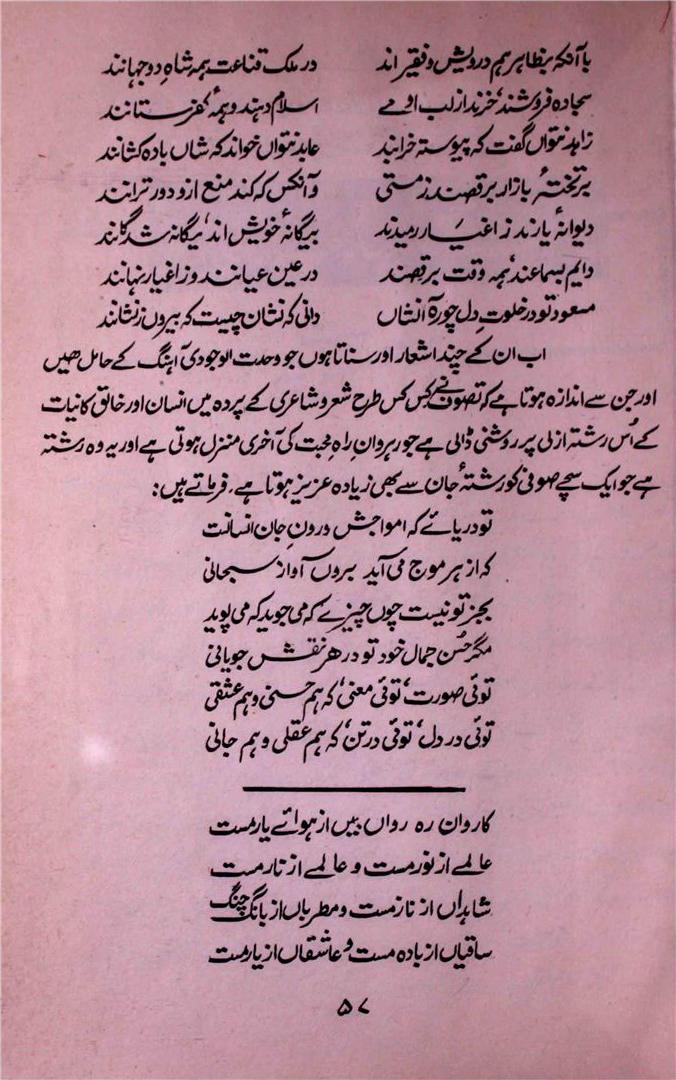 باآنکہ بظاہر ہم درویش و فقیر اند در ملک قناعت ہمہ شاہِ دوجہانند
سجادہ فروشند، خرند از لب او مے اسلام دہند و ہمہ کفر ستانند
زاہد نتواں گفت کہ پیوستہ خرابند عابد نتواں خواند کہ شاں بادہ کشانند
بر تختۂ بازار بر قصند ز مستی وآنکس کہ کند منع ازو دور ترانند
دیوانۂ یارند ز اغیار رمیدند بیگانۂ خویش اند، بیگانہ شدگانند
دایم بسماعند، ہمہ وقت بر قصند در عین عیانند و ز اغیار نہانند
مسعود تو در خلوت دل چو رۂ آنشاں دانی کہ نشان چیست کہ بیروں ز نشانند
اب ان کے چند اشعار اور سناتا ہوں جو وحدت الوجودی آہنگ کے حامل ھیں
اور جن سے اندازہ ہوتا ہے کہ تصوف نے کس کس طرح شعر و شاعری کے پردہ میں انسان اور خالق کائنات
کے اُس رشتہ ازلی پر روشنی ڈالی ہے جو رہروان راہِ محبت کی آخری منزل ہوتی ہے اور یہ وہ رشتہ
ہے جو ایک سچے صوفی کو رشتۂ جان سے بھی زیادہ عزیز ہوتا ہے۔ فرماتے ہیں:
تو دریائے کہ امواجش درونِ جان انسانت
کہ از ہر موج می آید بیروں آواز سبحانی
بجز تو نیست چوں چیزے کہ می جوید کہ می پوید
مگر حُسن جمال خود تو در ھر نقش جویانی
توئی صورت، توئی معنی، کہ ہم حسنی و ہم عشقی
توئی در دل، توئی در تن، کہ ہم عقلی و ہم جانی
کاروان رہ رواں بیں از ہوائے یار مست
عالمے از نور مست و عالمے از نار مست
شاہداں از ناز مست و مطرباں از بانگ چنگ
ساقیاں از بادہ مست و عاشقاں از یار مست
۵۷